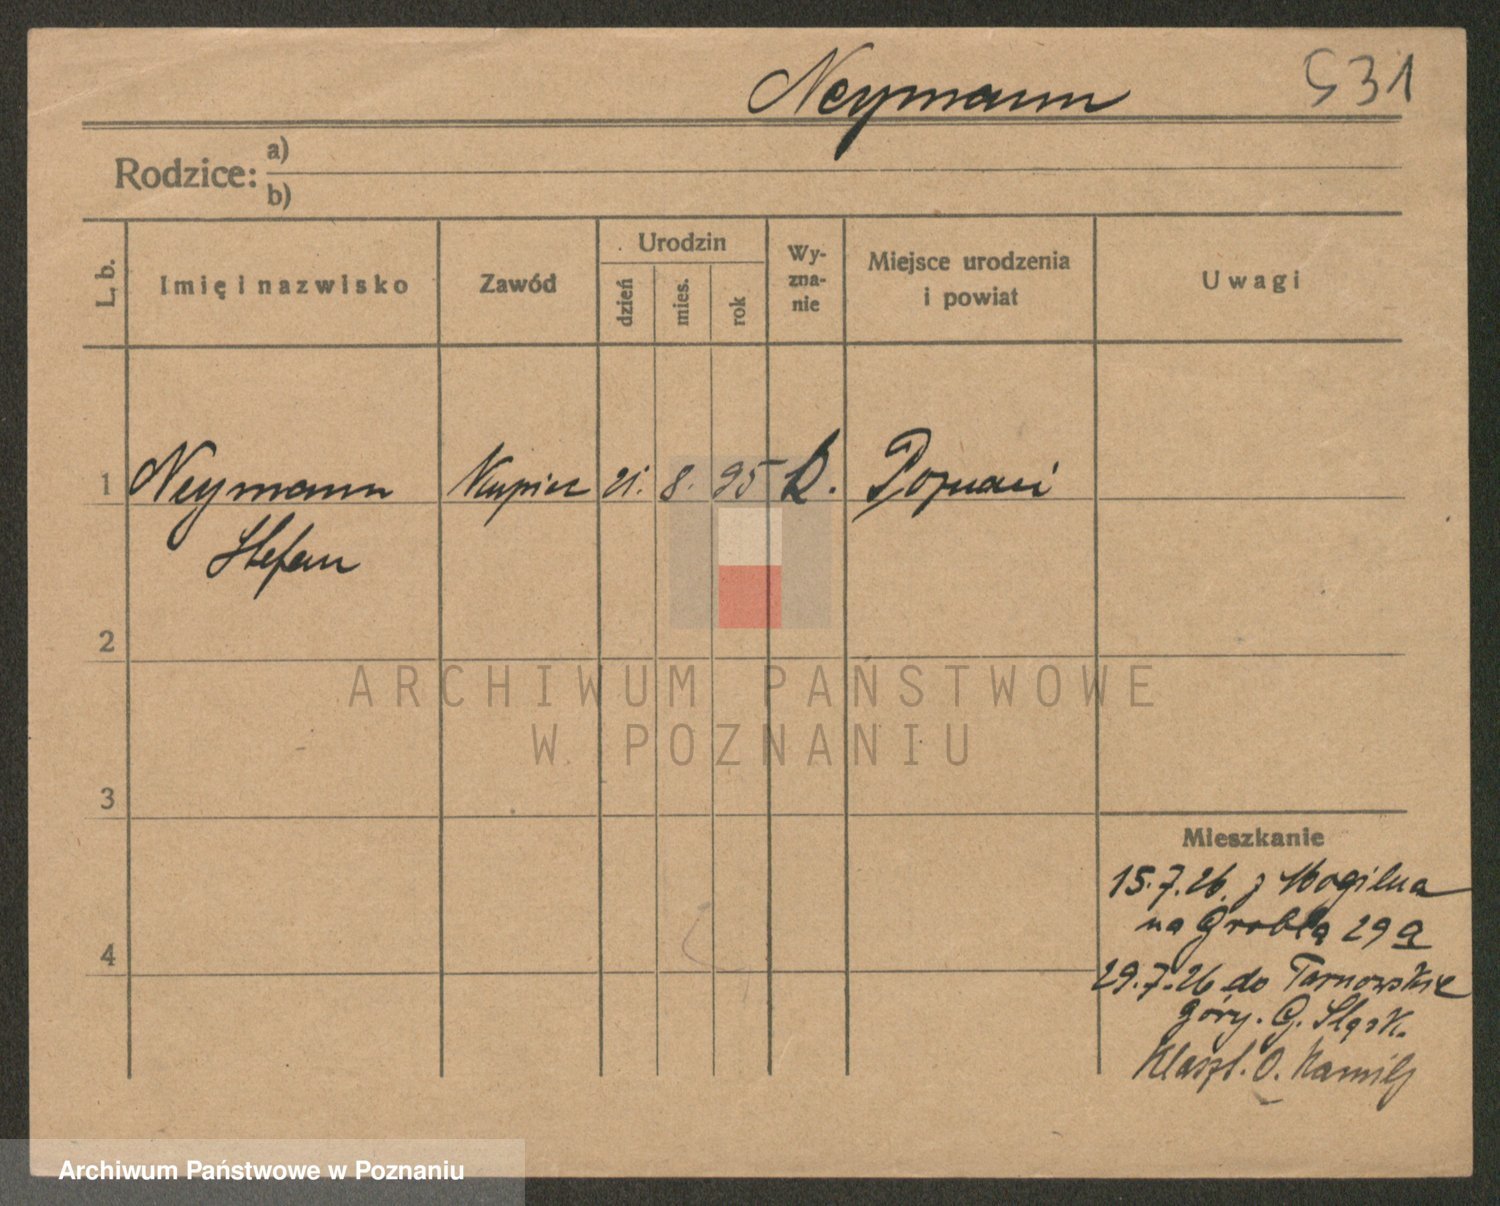 Neymann 531
Rodzice: a)
b)
L, b. Imię i nazwisko Zawód Urodzin dzień mies. rok Wy-zna-nie Miejsce urodzenia i powiat Uwagi
1 Neymann Kupiec 21. 8. 95 k. Poznań
Stefan
2
ARCHIWUM PAŃSTWOWE
W POZNANIU
3
Mieszkanie
15.7.26. z Mogilna
na Groblą 29a
4
29.7.26 do Tarnowskie
góry. G. Śląsk.
Klaszt. O. Kamilj
Archiwum Państwowe w Poznaniu